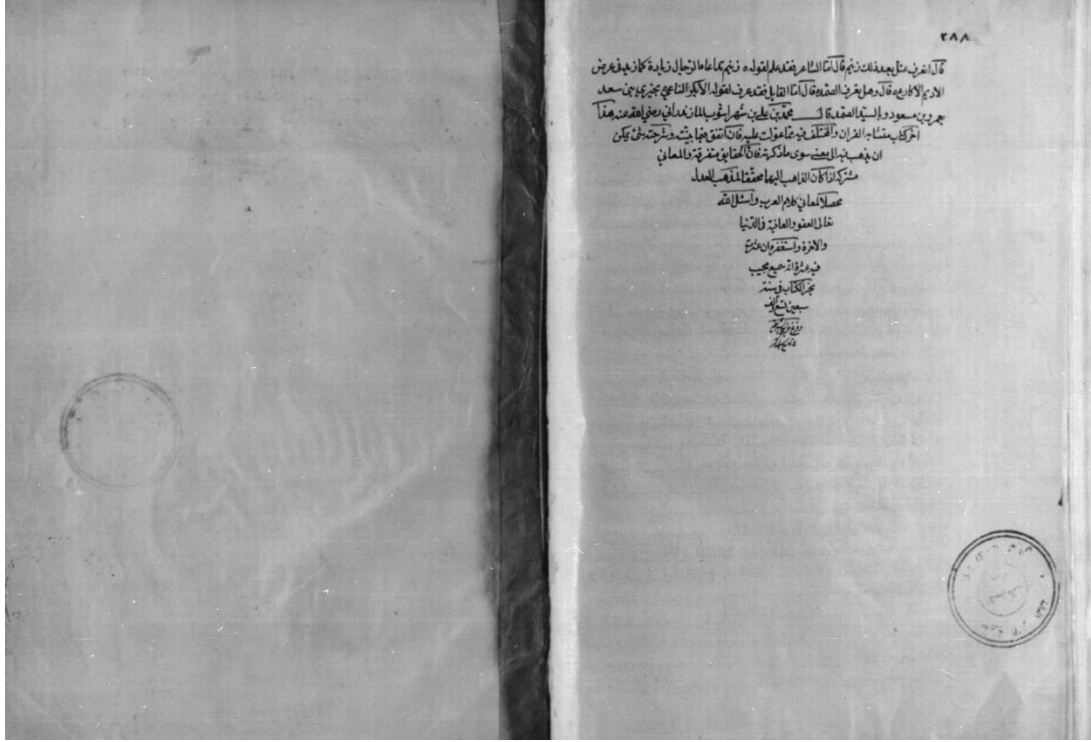 ٢٨٨
قال اتعرف عتل بعد ذلك زنيم قال اما الشاعر فقد علم لقوله زنيم تداعاه الرجال زيادة كما زيد في عرض
الاديم الاكارع قال وهل تعرف الصمد قال اما القايل فقد عرف لقوله الا بكر الناعي بخيري بني سعد
بعمرو بن مسعود وبالسيد الصمد قال محمد بن علي بن شهراشوب المازندراني رضي الله عنه هذا
اخر كتاب متشابه القران والمختلف فيه مما عولت عليه فان اتفق فيما بينت وشرحته شئ يمكن
ان يذهب فيه الى معنى سوى ما ذكرته فان الحقايق متفرقة والمعاني
مشتركة اذا كان الذاهب اليها محققا لمذهب العدل
محصلا لمعاني كلام العرب واسئل الله
تعالى العفو والعافية في الدنيا
والاخرة واستغفره ان عثرت
فيه عثرة انه سميع مجيب
نجز الكتاب في سنة
سبعين تسع